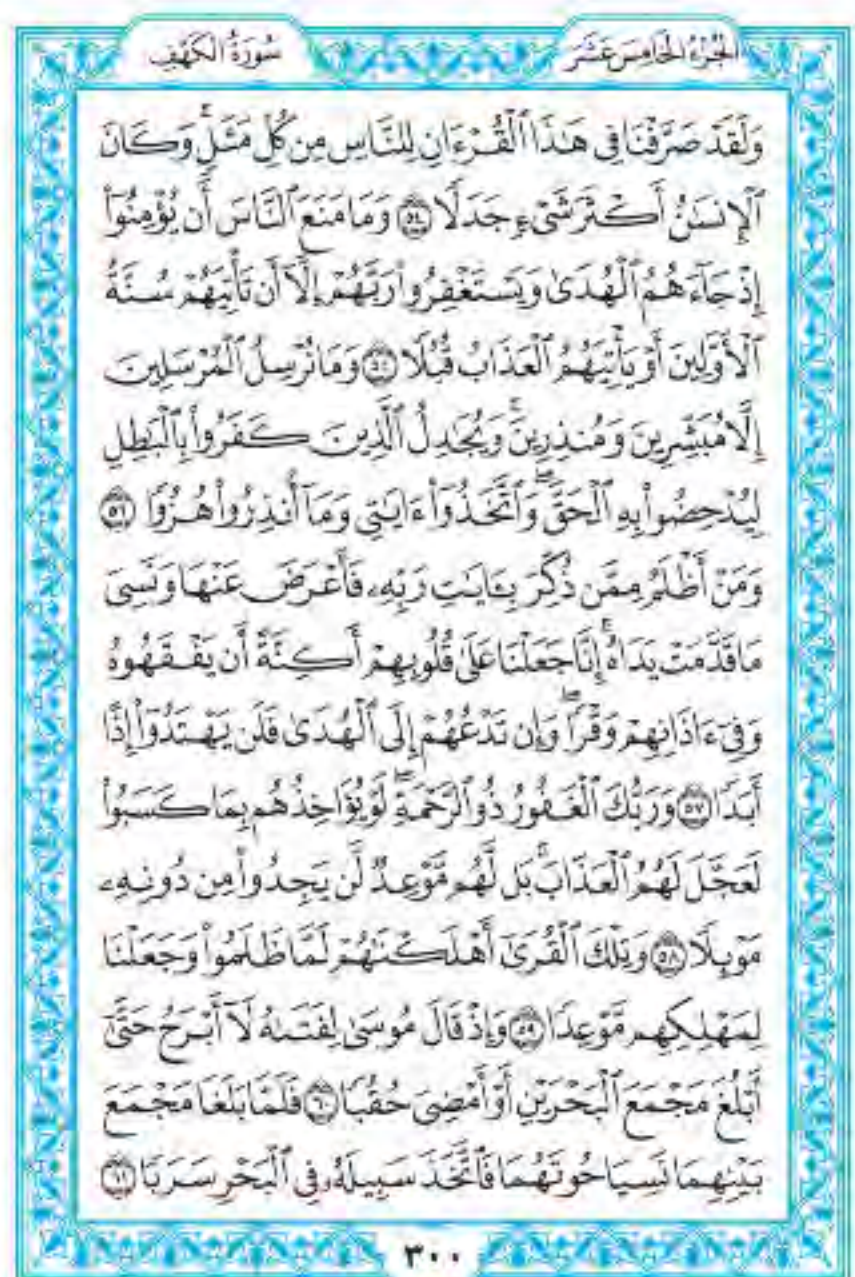 الجزء الخامس عشر
سورة الكهف
وَلَقَدْ صَرَّفْنَا فِى هَٰذَا ٱلْقُرْءَانِ لِلنَّاسِ مِن كُلِّ مَثَلٍۚ وَكَانَ
ٱلْإِنسَٰنُ أَكْثَرَ شَىْءٍ جَدَلًا ۝٥٤ وَمَا مَنَعَ ٱلنَّاسَ أَن يُؤْمِنُوٓا۟
إِذْ جَآءَهُمُ ٱلْهُدَىٰ وَيَسْتَغْفِرُوا۟ رَبَّهُمْ إِلَّآ أَن تَأْتِيَهُمْ سُنَّةُ
ٱلْأَوَّلِينَ أَوْ يَأْتِيَهُمُ ٱلْعَذَابُ قُبُلًا ۝٥٥ وَمَا نُرْسِلُ ٱلْمُرْسَلِينَ
إِلَّا مُبَشِّرِينَ وَمُنذِرِينَۚ وَيُجَٰدِلُ ٱلَّذِينَ كَفَرُوا۟ بِٱلْبَٰطِلِ
لِيُدْحِضُوا۟ بِهِ ٱلْحَقَّۖ وَٱتَّخَذُوٓا۟ ءَايَٰتِى وَمَآ أُنذِرُوا۟ هُزُوًا ۝٥٦
وَمَنْ أَظْلَمُ مِمَّن ذُكِّرَ بِـَٔايَٰتِ رَبِّهِۦ فَأَعْرَضَ عَنْهَا وَنَسِىَ
مَا قَدَّمَتْ يَدَاهُۚ إِنَّا جَعَلْنَا عَلَىٰ قُلُوبِهِمْ أَكِنَّةً أَن يَفْقَهُوهُ
وَفِىٓ ءَاذَانِهِمْ وَقْرًاۖ وَإِن تَدْعُهُمْ إِلَى ٱلْهُدَىٰ فَلَن يَهْتَدُوٓا۟ إِذًا
أَبَدًا ۝٥٧ وَرَبُّكَ ٱلْغَفُورُ ذُو ٱلرَّحْمَةِۖ لَوْ يُؤَاخِذُهُم بِمَا كَسَبُوا۟
لَعَجَّلَ لَهُمُ ٱلْعَذَابَۚ بَل لَّهُم مَّوْعِدٌ لَّن يَجِدُوا۟ مِن دُونِهِۦ
مَوْئِلًا ۝٥٨ وَتِلْكَ ٱلْقُرَىٰٓ أَهْلَكْنَٰهُمْ لَمَّا ظَلَمُوا۟ وَجَعَلْنَا
لِمَهْلِكِهِم مَّوْعِدًا ۝٥٩ وَإِذْ قَالَ مُوسَىٰ لِفَتَىٰهُ لَآ أَبْرَحُ حَتَّىٰٓ
أَبْلُغَ مَجْمَعَ ٱلْبَحْرَيْنِ أَوْ أَمْضِىَ حُقُبًا ۝٦٠ فَلَمَّا بَلَغَا مَجْمَعَ
بَيْنِهِمَا نَسِيَا حُوتَهُمَا فَٱتَّخَذَ سَبِيلَهُۥ فِى ٱلْبَحْرِ سَرَبًا ۝٦١
٣٠٠